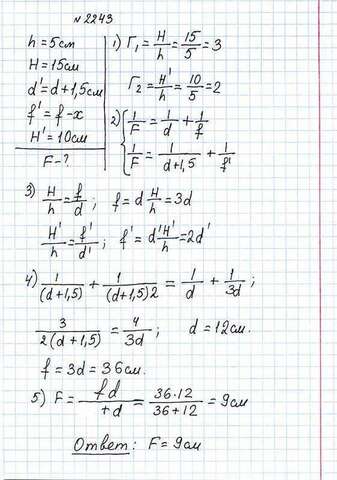 № 2243
h = 5см
H = 15см
d' = d+1,5см
f' = f-x
H' = 10см
F-?
1) Г₁ = H/h = 15/5 = 3
Г₂ = H'/h = 10/5 = 2
2) { 1/F = 1/d + 1/f
1/F = 1/(d+1,5) + 1/f'
3) H/h = f/d ; f = d H/h = 3d
H'/h = f'/d' ; f' = d'H'/h = 2d'
4) 1/(d+1,5) + 1/(d+1,5)2 = 1/d + 1/3d ;
3/2(d+1,5) = 4/3d ; d = 12см.
f = 3d = 36см.
5) F = fd/+d = 36·12/36+12 = 9см
Ответ: F = 9см